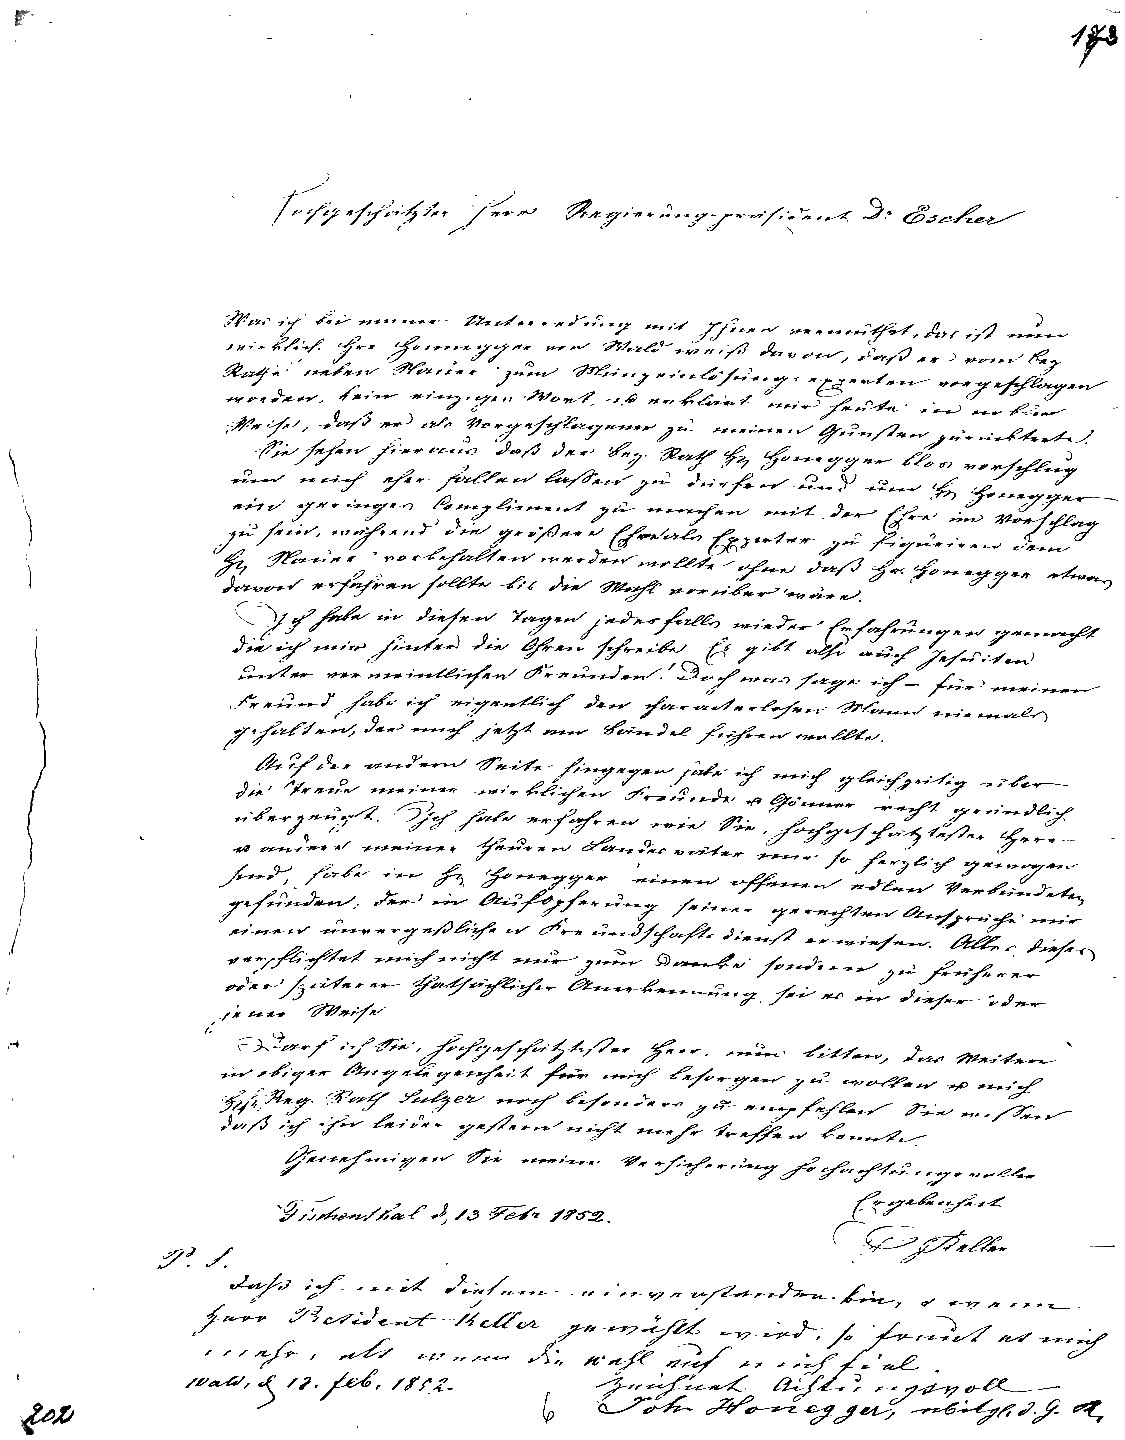 173
Hochgeschätzter Herr Regierungspräsident Dr Escher
Was ich bei meiner Unterredung mit Ihnen vermuthet, das ist nun
wirklich. Hr Honnegger von Wald weiß davon, daß er vom Bez
Rathe neben Maurer zum Münzeinlösungsexperten vorgeschlagen
worden, kein einziges Wort, u erklärt mir heute in
Weise, daß er als Vorgeschlagener zu meinen Gunsten zurücktrete.
Sie sehen hieraus daß der Bez. Rath Hr Honegger blos vorschlug
um mich eher fallen lassen zu dürfen und um Hr Honegger
ein geringes Compliment zu machen mit der Ehre im Vorschlag
zu sein, während die größere Ehre als Experter zu figüriren dem
Hr Maurer vorbehalten werden wollte ohne daß Hr. Honegger etwas
davon erfahren sollte bis die Wahl vorüber wäre.
Ich habe in diesen Tagen jedesfalls wieder Erfahrungen gemacht
die ich mir hinter die Ohren schreibe Es gibt also auch Jesuiten
unter vermeintlichen Freunden! Doch was sage ich – für meinen
Freund habe ich eigentlich den characterlosen Mann niemals
gehalten, der mich jetzt am Bändel führen wollte.
Auf der andern Seite hingegen habe ich mich gleichzeitig über
die Treue meiner wirklichen Freunde u Gönner recht gründlich
überzeugt. Ich habe erfahren wie Sie, hochgeschätztester Herr
u andere meiner theuren Landesväter mir so herzlich gewogen
sind, habe in Hr Honegger einen offenen edlen Verbündeten
gefunden, der in Aufopferung seiner gerechten Ansprüche mir
einen unvergeßlichen Freundschaftsdienst erwiesen. Alles dieses
verpflichtet mich nicht nur zum Danke sondern zu früherer
oder späterer thatsächlicher Anerkennung sei es in dieser oder
jener Weise
Darf ich Sie, hochgeschätztester Herr, nun bitten, das Weitere
in obiger Angelegenheit für mich besorgen zu wollen u mich
Reg. Rath Sulzer noch besonders zu empfehlen Sie wissen
daß ich ihn leider gestern nicht mehr treffen konnte.
Genehmigen Sie meine Versicherung hochachtungsvoller
Ergebenheit
Fischenthal d, 13 Febr 1852.
Keller
P. S.
daß ich mit diesem einverstanden bin, & wenn
Herr President Keller gewählt wird, so freut es mich
mehr, als wenn die wahl auf mich fiel.
Wald, d 13. feb. 1852.
zeichnet Achtungsvoll
Joh Honegger, d. G. R.
202